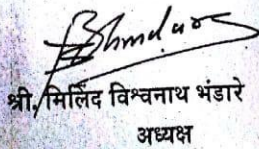 श्री. मिलिंद विश्वनाथ भंडारे
अध्यक्ष